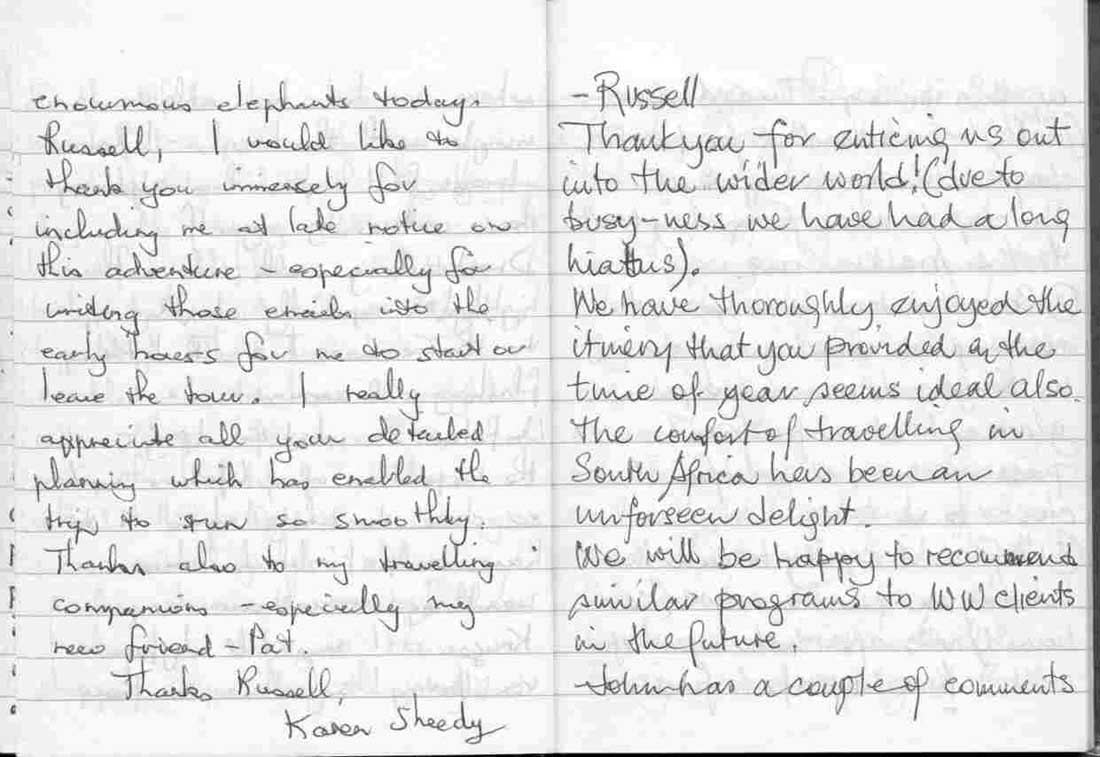 enourmous elephants today.
Russell, I would like to
thank you immensely for
including me at late notice on
this adventure - especially for
those into the
early hours for me to start or
leave the tour. I really
appreciate all your detailed
planning which has enabled the
trip to run so smoothly.
Thanks also to my travelling
companions - especially my
new friend - Pat.
Thanks Russell
Karen Sheedy
- Russell
Thankyou for enticing us out
into the wider world! (due to
busy-ness we have had a long
hiatus).
We have thoroughly enjoyed the
itinery that you provided & the
time of year seems ideal also.
The comfort of travelling in
South Africa has been an
unforseen delight.
We will be happy to recommend
similar programs to WW clients
in the future.
John has a couple of comments